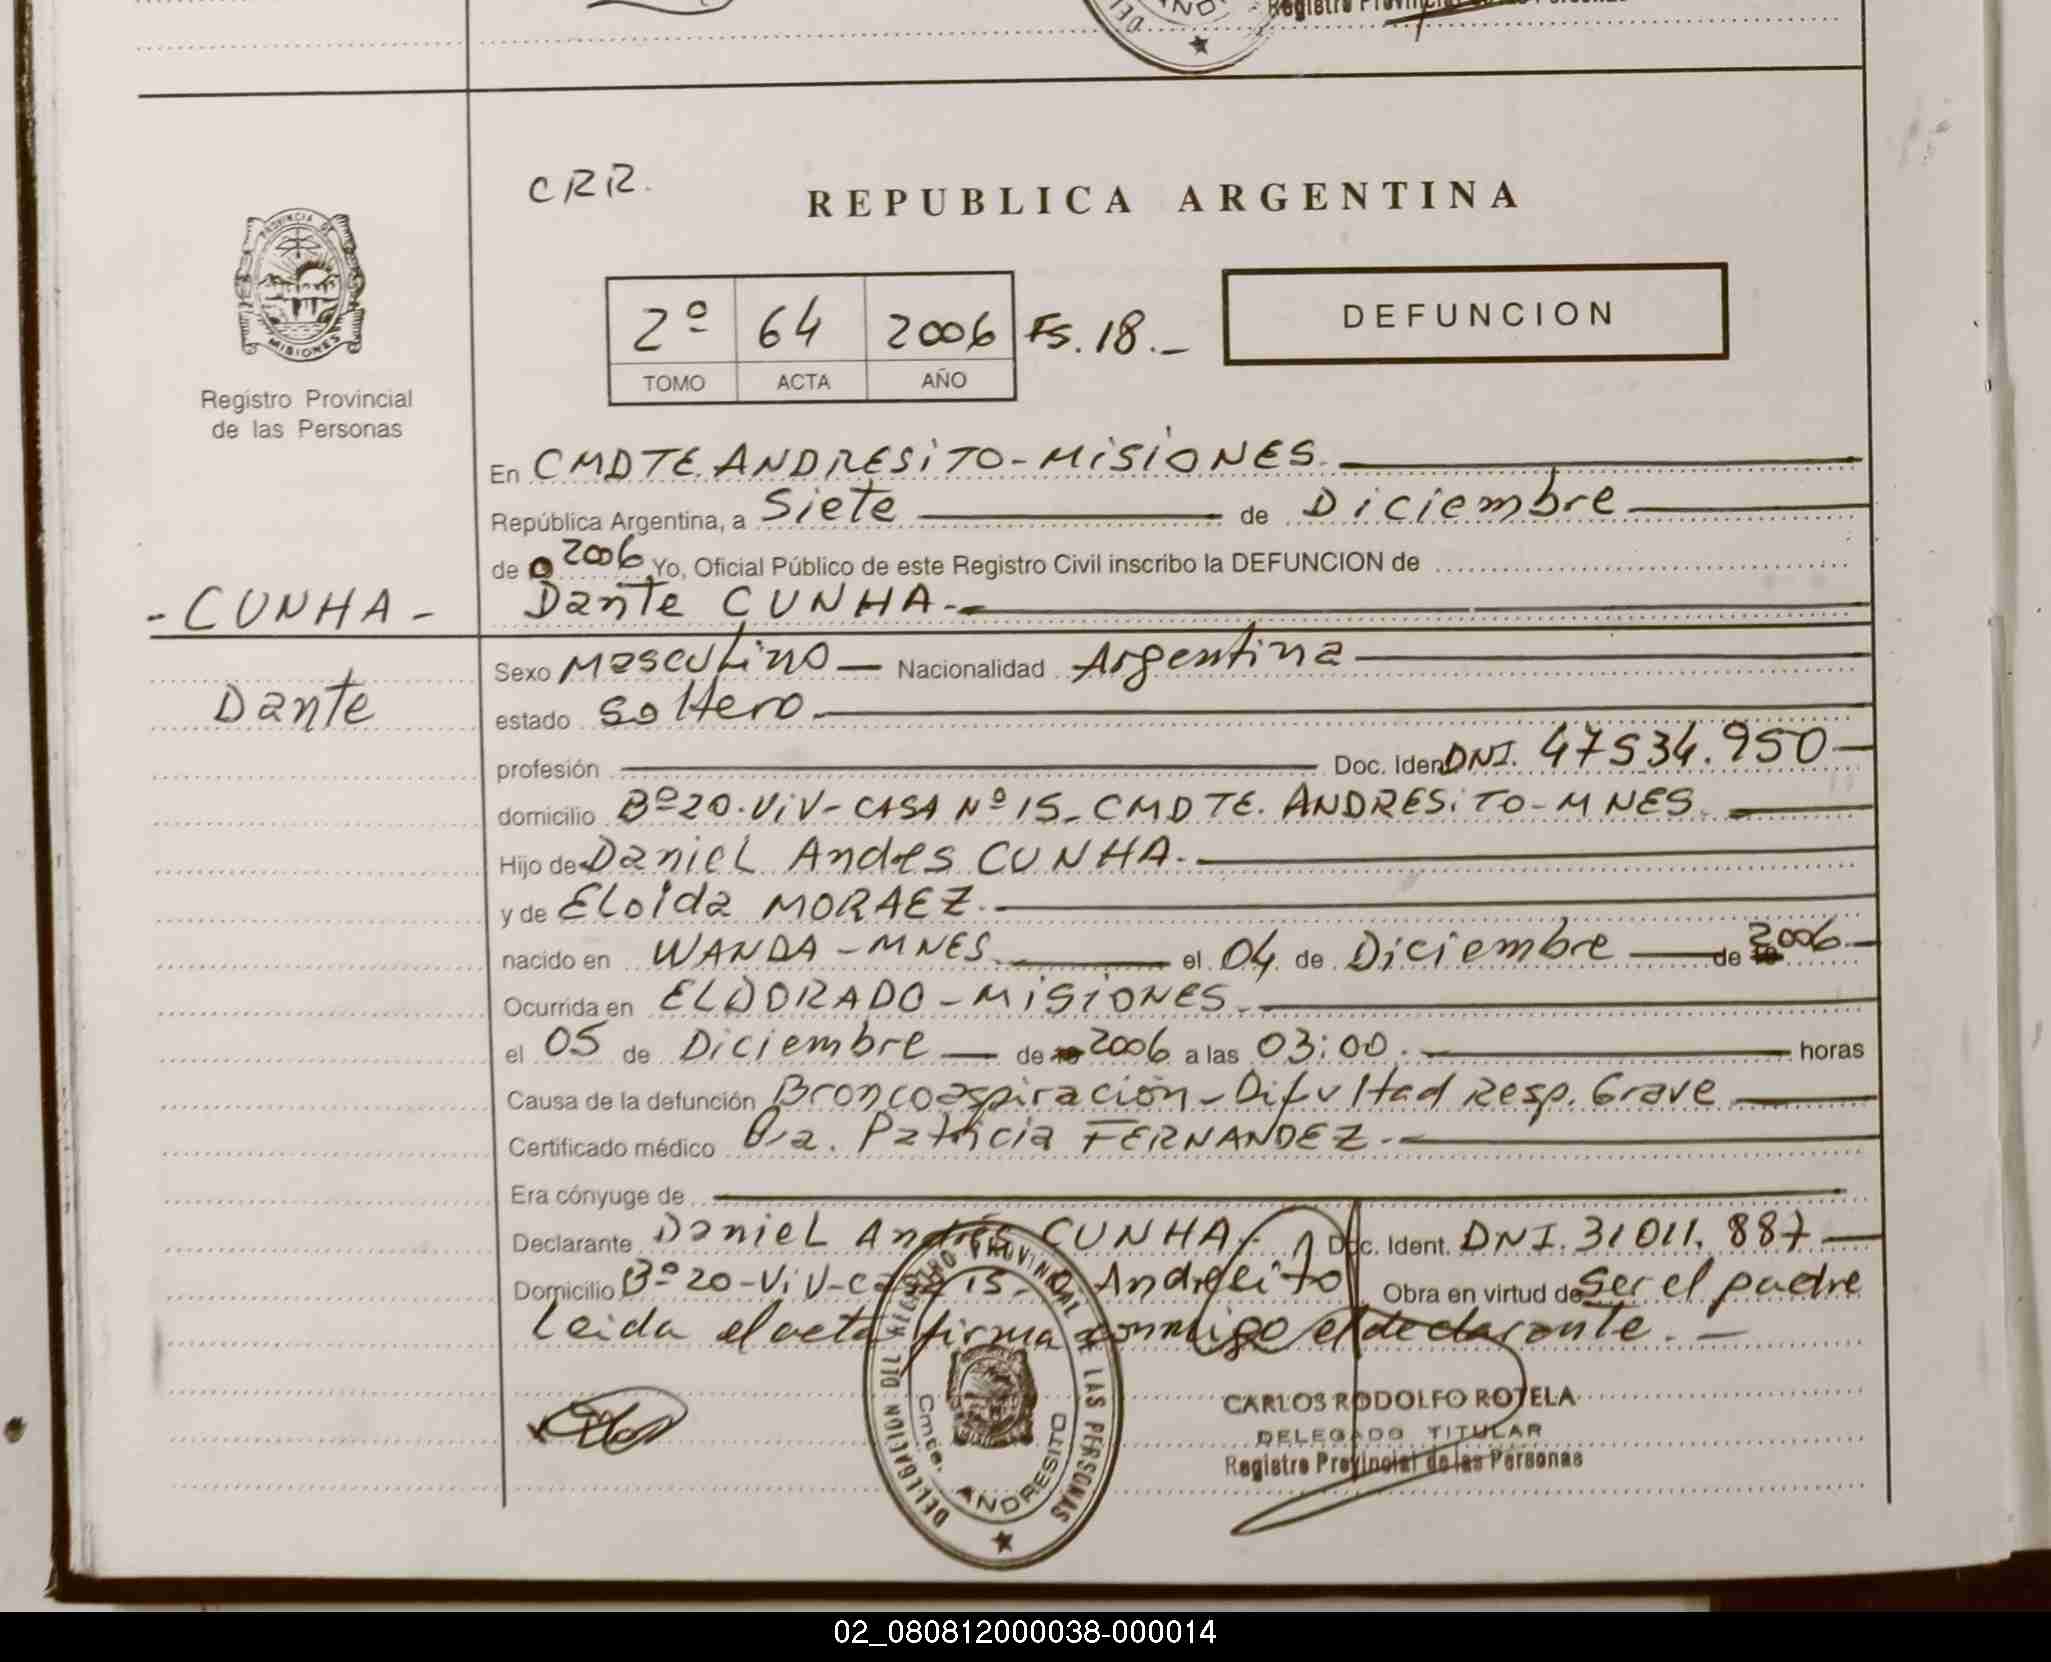 Registro Provincial de las Personas
CRR.
REPUBLICA ARGENTINA
PROVINCIA DE
MISIONES
2º 64 2006 Fs. 18.-
TOMO ACTA AÑO
DEFUNCION
Registro Provincial
de las Personas
En CMDTE. ANDRESiTO - MiSiONES.
República Argentina, a Siete de Diciembre
de 2006 Yo, Oficial Público de este Registro Civil inscribo la DEFUNCION de
- CUNHA - Dante CUNHA.-
Sexo Masculino Nacionalidad Argentina
Dante estado Soltero
profesión Doc. Iden DNI. 47534.950
domicilio Bº 20. ViV - CASA Nº 15 - CMDTE. ANDRESiTO - MNES.
Hijo de Daniel Andres CUNHA.
y de Eloida MORAEZ.
nacido en WANDA - MNES. el 04 de Diciembre de 2006.
Ocurrida en ELDORADO - MiSiONES.
el 05 de Diciembre de 2006 a las 03:00. horas
Causa de la defunción Broncoaspiración - Difultad Resp. Grave
Certificado médico Dra. Patricia FERNANDEZ.-
Era cónyuge de
Declarante Daniel Andrés CUNHA. Doc. Ident. DNI. 31011.887
Domicilio Bº 20 - ViV - Casa 15 - Andresito Obra en virtud de Ser el padre
Leida el acta firma conmigo el declarante. -
DELEGACION DEL REGISTRO PROVINCIAL DE LAS PERSONAS
Cmte. ANDRESITO
CARLOS RODOLFO ROTELA
DELEGADO TITULAR
Registro Provincial de las Personas
02_080812000038-000014